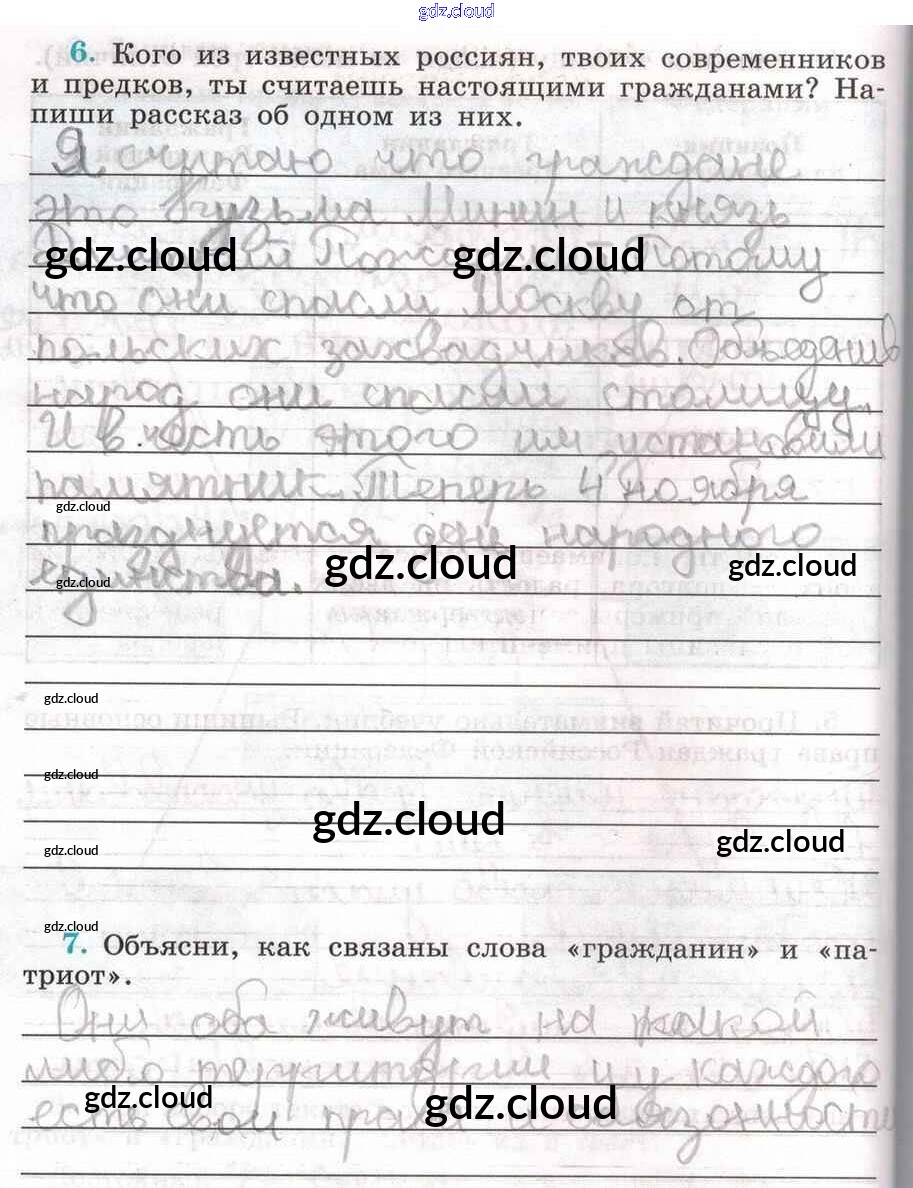 gdz.cloud
6. Кого из известных россиян, твоих современников
и предков, ты считаешь настоящими гражданами? На-
пиши рассказ об одном из них.
Я считаю что граждане
это Кузьма Минин и князь
Потому
gdz.cloud gdz.cloud
что они спасли Москву от
польских захвадчиков. Обьеденив
народ они спасли столицу.
И в честь этого им установили
памятник. Теперь 4 ноября
gdz.cloud
празднуется день народного
gdz.cloud gdz.cloud
единства.
gdz.cloud
gdz.cloud
gdz.cloud
gdz.cloud
gdz.cloud
gdz.cloud
gdz.cloud
7. Объясни, как связаны слова «гражданин» и «па-
триот».
Они оба живут на какой
либо территории и у каждого
gdz.cloud gdz.cloud
есть свои права и обязонности